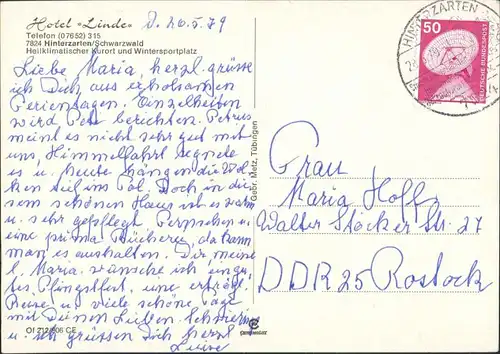 Hotel «Linde»
D. 26.5.79
Telefon (07652) 315
7824 Hinterzarten/Schwarzwald
Heilklimatischer Kurort und Wintersportplatz
Liebe Maria, herzl. grüsse
ich Dich aus erholsamen
Ferientagen. Einzelheiten
wird Pet berichten. Petrus
meint es nicht sehr gut mit
uns, Himmelfahrt regnete
es u. heute hängen die Wol-
ken tief ins Tal. Doch in die-
sem schönen Haus ist es warm
u. sehr gepflegt. Fernsehen u.
eine prima Bücherei, da kann
man es aushalten. Dir meine
l. Maria wünsche ich ein gu-
tes Pfingstfest, eine erhol.
Reise u. viele schöne Tage
mit Deinen Lieben.
u. ich grüssen Dich herzl.
Luise
Of 212/906 CE
Gebr. Metz, Tübingen
HINTERZARTEN
50
DEUTSCHE BUNDESPOST
Frau
Maria Hoff
Walter Stöcker Str. 27
DDR 25 Rostock